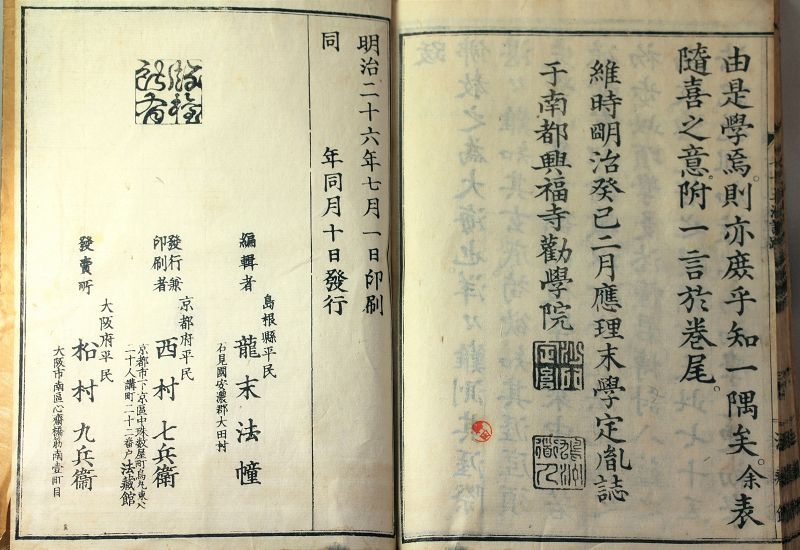 由是學焉。則亦庶乎知一隅矣。余表
隨喜之意。附一言於卷尾。
維時明治癸巳二月應理末學定胤誌
于南都興福寺勸學院
明治二十六年七月一日印刷
同年同月十日發行
編輯者
島根縣平民
龍末法幢
石見國安濃郡大田村
發行兼
印刷者
京都府平民
西村七兵衞
京都市下京區中珠数屋町烏丸東入
二十人講町二十二番戸法藏館
發賣所
大阪府平民
松村九兵衞
大阪市南區心齋橋筋南壹町目